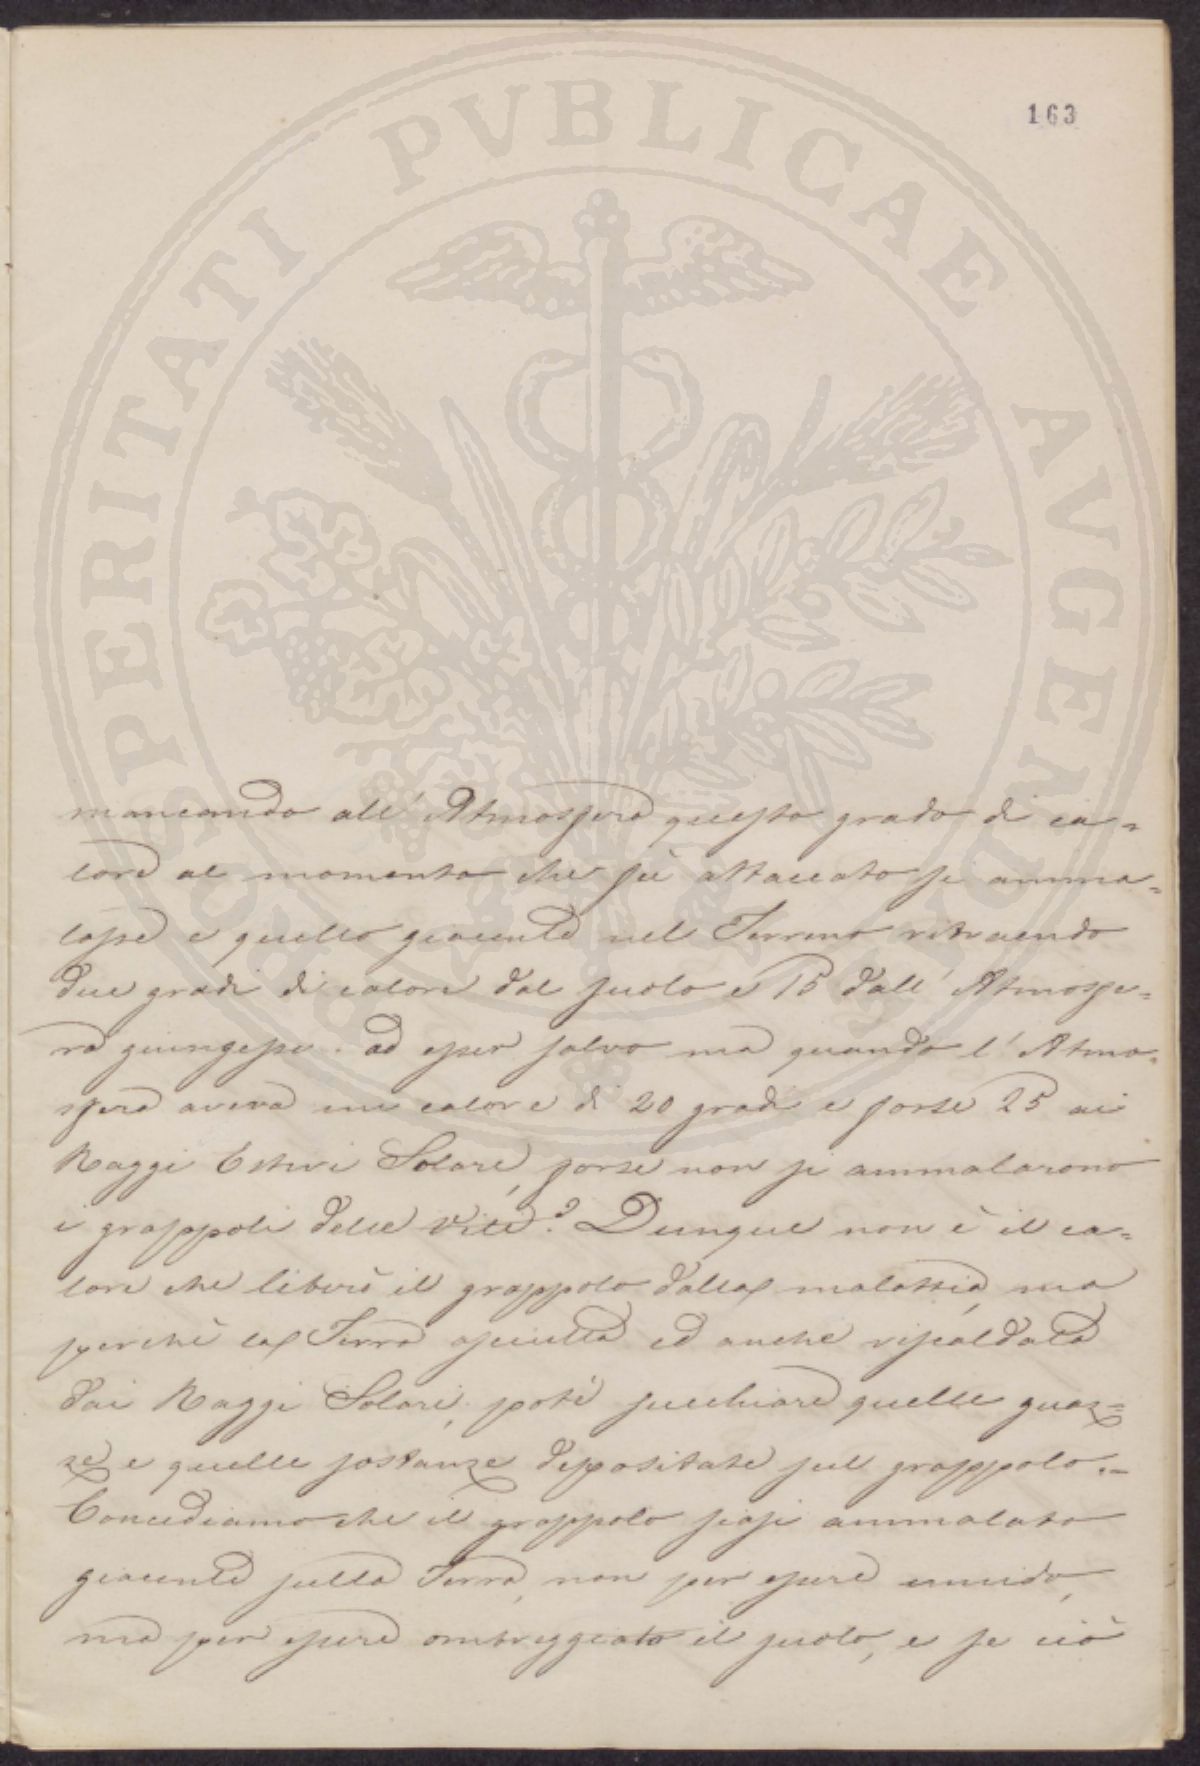 163
PROSPERITATI PVBLICAE AVGENDAE
mancando all' Atmosfera questo grado di ca=
lore al momento che fù attaccato si amma=
lasse e quello giacente nel Terreno ritraendo
due gradi di calore dal suolo e 15 dall' Atmosfe=
ra giungesse ad esser salvo ma quando l' Atmo=
sfera aveva un calore di 20 gradi e forse 25 ai
Raggi Estivi Solari, forse non si ammalarono
i grappoli delle Viti? Dunque non è il ca=
lore che liberò il grappolo dalla malattia, ma
perchè la Terra asciutta ed anche riscaldata
dai Raggi Solari, potè succhiare quelle guaz=
ze e quelle sostanze depositate sul grappolo.=
Concediamo che il grappolo siasi ammalato
giacente sulla Terra, non per essere umido,
ma per essere ombreggiato il suolo, e se ciò